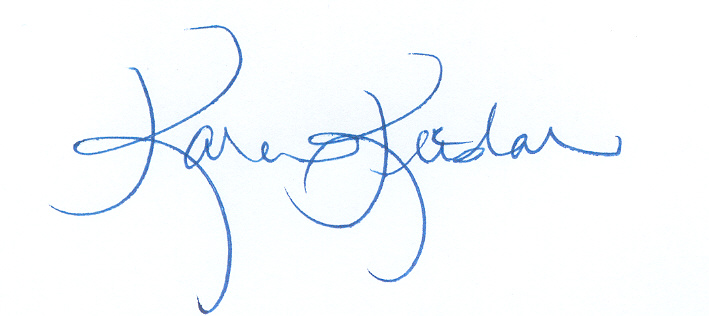 Karen Keidar